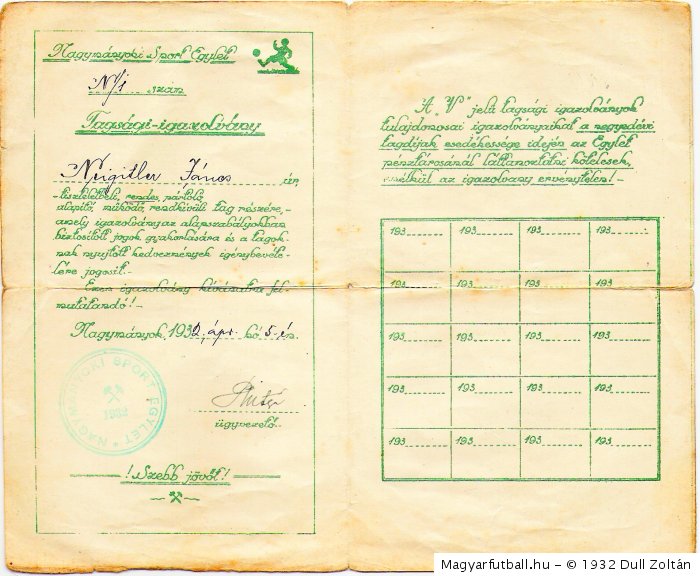 Nagymányoki Sport Egylet
N/1 szám
Tagsági-igazolvány
János úr,
tiszteletbeli, rendes, pártoló
alapító, működő, rendkívüli tag részére,-
amely igazolvány az alapszabályokban
biztosított jogok gyakorlására és a tagok-
nak nyujtott kedvezmények igénybevéte-
lére jogosít.-
Ezen igazolvány kívánatra fel
mutatandó!-
Nagymányok, 1932. ápr. hó 5-én.
NAGYMÁNYOKI SPORT EGYLET
1932
ügyvezető.
! Szebb jövőt!
A "V" jelű tagsági igazolványok
tulajdonosai igazolványaikat a negyedévi
tagdíjak esedékessége idején az Egylet
pénztárosánál láttamoztatni kötelesek,
nélkül az igazolvány érvénytelen!-
193 193 193 193
193 193 193 193
193 193 193 193
193 193 193 193
193 193 193 193
Magyarfutball.hu – © 1932 Dull Zoltán